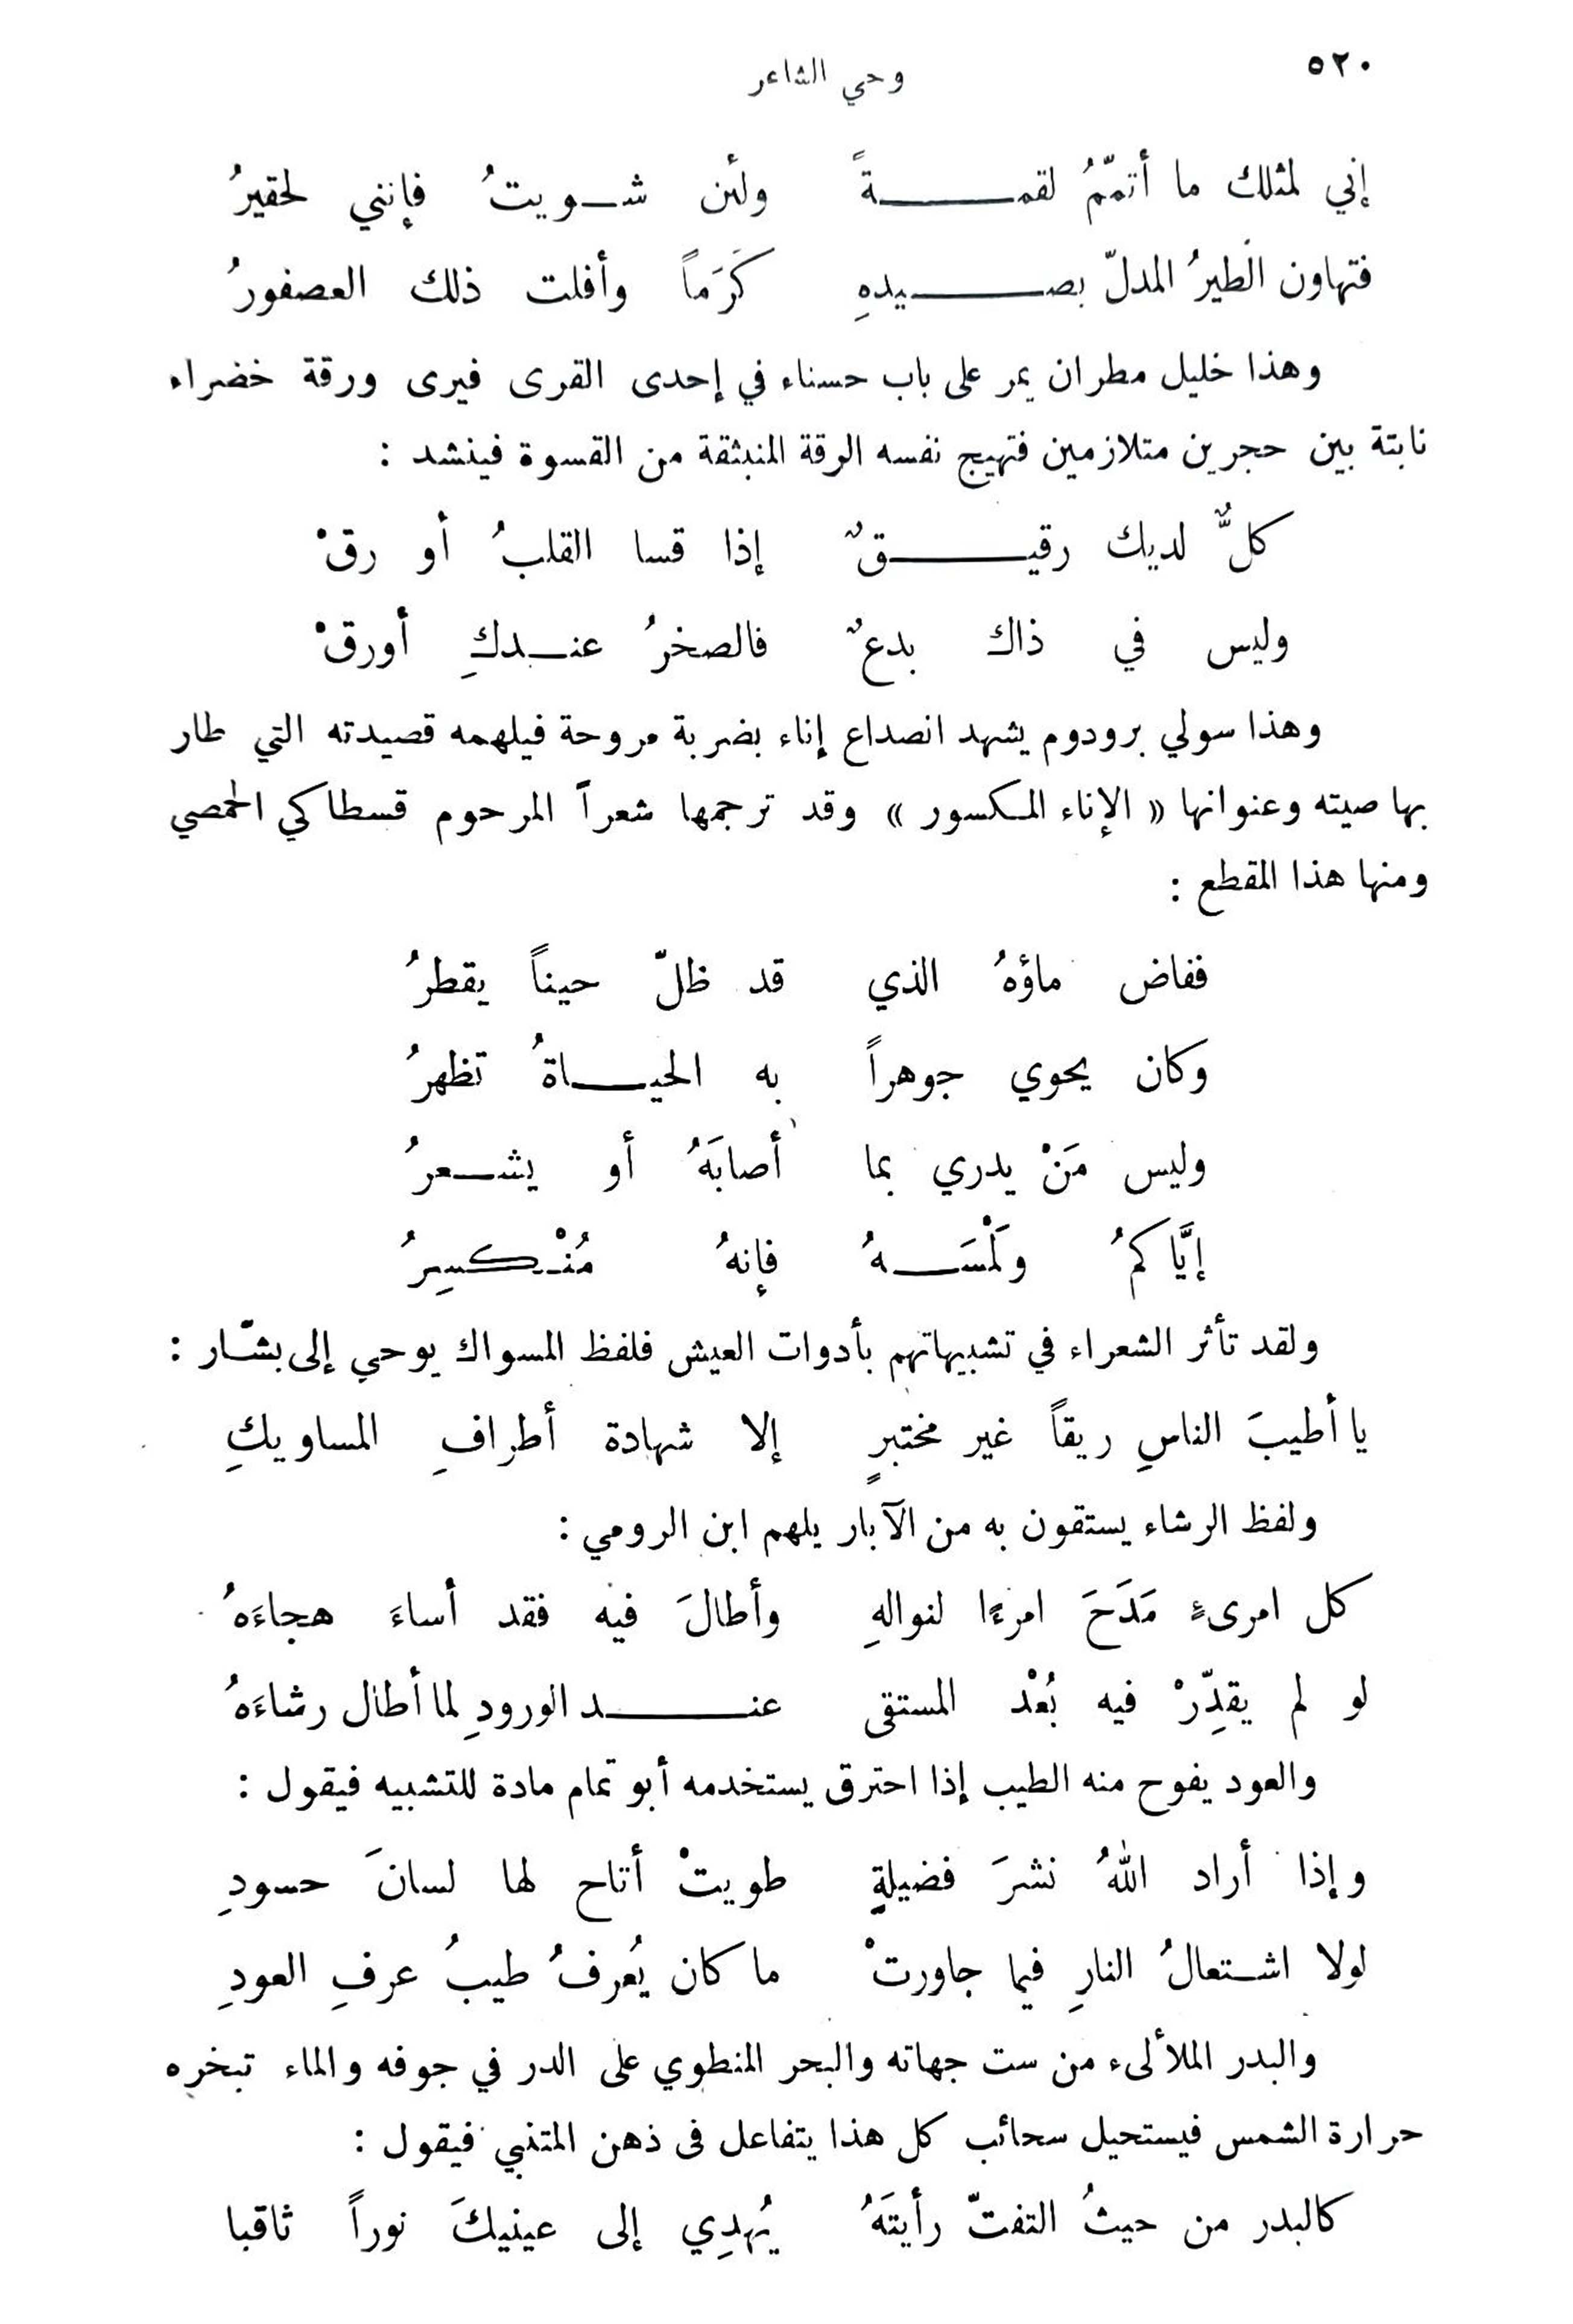 ٥٢٠
وحي الشاعر
إني لمثلك ما أتمّمُ لقمةً ولئن شويتُ فإنني لحقيرُ
فتهاون الطيرُ المدلّ بصيدهِ كَرَماً وأفلت ذلك العصفورُ
وهذا خليل مطران يمر على باب حسناء في إحدى القرى فيرى ورقة خضراء
نابتة بين حجرين متلازمين فتهيج نفسه الرقة المنبثقة من القسوة فينشد :
كلٌّ لديك رقيقٌ إذا قسا القلبُ أو رقْ
وليس في ذاك بدعٌ فالصخرُ عندكِ أورقْ
وهذا سولي برودوم يشهد انصداع إناء بضربة مروحة فيلهمه قصيدته التي طار
بها صيته وعنوانها « الإناء المكسور » وقد ترجمها شعراً المرحوم قسطاكي الحمصي
ومنها هذا المقطع :
ففاض ماؤهُ الذي قد ظلّ حيناً يقطرُ
وكان يحوي جوهراً به الحياةُ تظهرُ
وليس مَنْ يدري بما أصابَهُ أو يشعرُ
إيَّاكمُ ولَمْسَهُ فإنهُ مُنْكسِرُ
ولقد تأثر الشعراء في تشبيهاتهم بأدوات العيش فلفظ المسواك يوحي إلى بشّار :
يا أطيبَ الناسِ ريقاً غير مختبرٍ إلا شهادة أطرافِ المساويكِ
ولفظ الرشاء يستقون به من الآبار يلهم ابن الرومي :
كل امرىءٍ مَدَحَ امرءًا لنوالهِ وأطالَ فيه فقد أساءَ هجاءَهُ
لو لم يقدِّرْ فيه بُعْد المستقى عند الورودِ لما أطال رشاءَهُ
والعود يفوح منه الطيب إذا احترق يستخدمه أبو تمام مادة للتشبيه فيقول :
وإذا أراد اللهُ نشرَ فضيلةٍ طويتْ أتاح لها لسانَ حسودِ
لولا اشتعالُ النارِ فيما جاورتْ ما كان يُعرفُ طيبُ عرفِ العودِ
والبدر الملألىء من ست جهاته والبحر المنطوي على الدر في جوفه والماء تبخره
حرارة الشمس فيستحيل سحائب كل هذا يتفاعل في ذهن المتنبي فيقول :
كالبدر من حيثُ التفتّ رأيتَهُ يُهدِي إلى عينيكَ نوراً ثاقبا